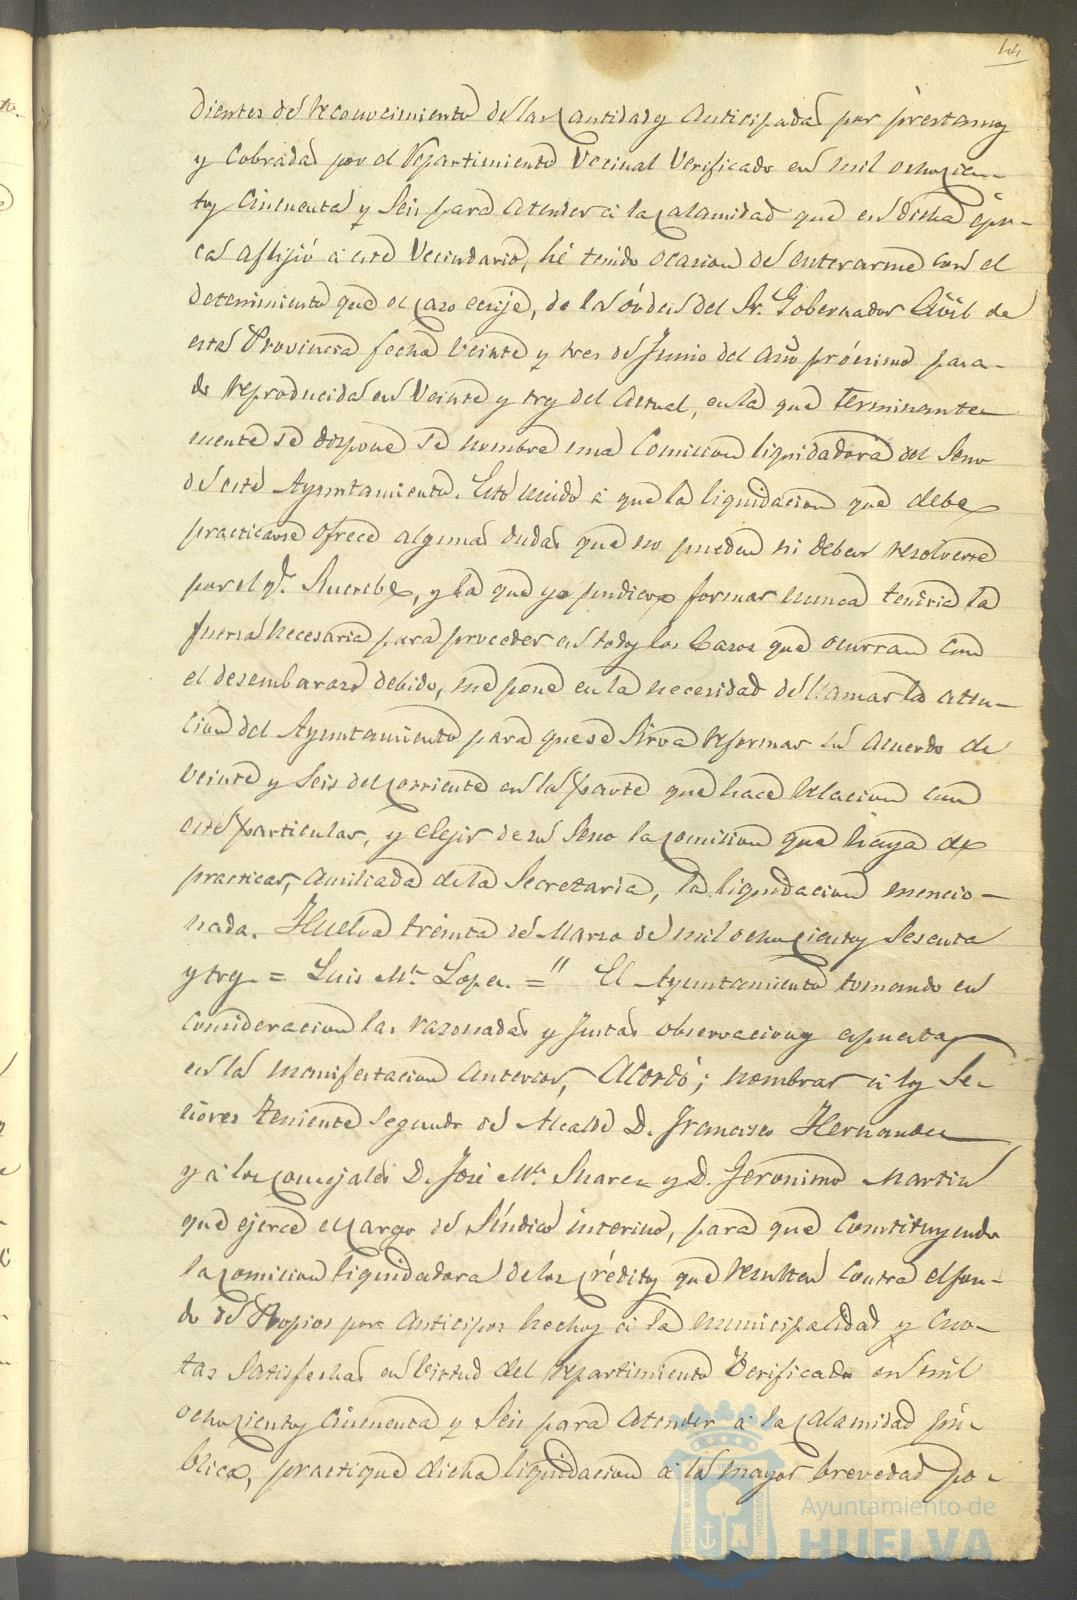 44
dientes del reconocimiento de las cantidades anticipadas por prestamos
y cobradas por el repartimiento vecinal verificado en mil ochocien-
tos cincuenta y seis para atender á la calamidad que en dicha épo-
ca aflijió á este vecindario, hé tenido ocasion de enterarme con el
detenimiento que el caso ecsije, de las órdenes del Sr. Gobernador Civil de
esta Provincia fecha veinte y tres de Junio del año prócsimo pasa-
do reproducida en veinte y tres del actual, en la que terminante-
mente se dispone se nombre una Comision liquidadora del seno
de este Ayuntamiento. Esto unido á que la liquidacion que debe
practicarse ofrece algunas dudas que no pueden ni deben resolverse
por el qe. suscribe, y la que yo pudiera formar nunca tendria la
fuerza necesaria para proceder en todos los casos que ocurran con
el desembarazo debido, me pone en la necesidad de llamar la aten-
cion del Ayuntamiento para que se sirva reformar su acuerdo de
veinte y seis del corriente en la parte que hace relacion con
este particular, y elejir de su seno la comision que haya de
practicar, ausiliada de la Secretaria, la liquidacion mencio-
nada. Huelva treinta de Marzo de mil ochocientos sesenta
y tres. = Luis Ma. Lopez. =" El Ayuntamiento tomando en
consideracion las razonadas y justas observaciones espuestas
en la manifestacion anterior, Acordó; nombrar á los Se-
ñores Teniente segundo de Alcalde D. Francisco Hernandez
y á los concejales D. José Ma. Suarez y D. Jeronimo Martin
que ejerce el cargo de Síndico interino, para que constituyendo
la comision liquidadora de los créditos que resulten contra el fon-
do de Propios por anticipos hechos á la municipalidad y cuo-
tas satisfechas en virtud del repartimiento verificado en mil
ochocientos cincuenta y seis para atender á la calamidad pú-
blica, practique dicha liquidacion á la mayor brevedad po-
PORTUS MARIS
CUSTODIA
Ayuntamiento de
HUELVA